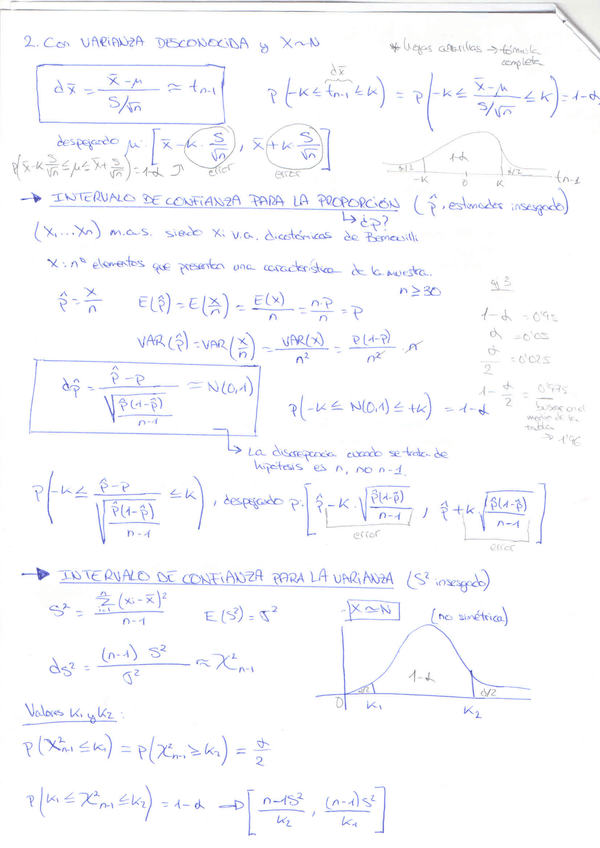 2. Con VARIANZA DESCONOCIDA y X∼N
* Hojas amarillas → fórmula completa
d x̄ = (x̄ − μ) / (S/√n) ≈ t n-1
P(−K ≤ t n-1 ≤ K) = P(−K ≤ (x̄ − μ)/(S/√n) ≤ K) = 1−α
d x̄
despejando μ: [x̄ − K · S/√n , x̄ + K · S/√n]
error error
P(x̄ − K S/√n ≤ μ ≤ x̄ + S/√n) = 1−α
α/2 1−α α/2
−K 0 K t n-1
→ INTERVALO DE CONFIANZA PARA LA PROPORCIÓN (p̂, estimador insesgado)
↳ ¿p?
(X1...Xn) m.a.s. siendo Xi v.a. dicotómicas de Bernouilli
X: nº elementos que presentan una característica de la muestra.
n ≥ 30
p̂ = X/n E(p̂) = E(X/n) = E(X)/n = n·p/n = p
VAR(p̂) = VAR(X/n) = VAR(X)/n² = p(1−p)/n² · n
ej 3
1−α = 0'95
α = 0'05
α/2 = 0'025
1 − α/2 = 0'975
buscar en el medio de la tabla
→ 1'96
d p̂ = (p̂ − p) / √(p̂(1−p̂)/(n−1)) ≈ N(0,1)
P(−K ≤ N(0,1) ≤ +K) = 1−α
↳ La discrepancia cuando se trata de
hipótesis es n, no n−1.
P(−K ≤ (p̂ − p)/√(p̂(1−p̂)/(n−1)) ≤ K), despejando p: [p̂ − K · √(p̂(1−p̂)/(n−1)) , p̂ + K √(p̂(1−p̂)/(n−1))]
error error
→ INTERVALO DE CONFIANZA PARA LA VARIANZA (S² insesgado)
S² = Σ i=1 n (xi − x̄)² / (n−1) E(S²) = σ²
X ≃ N (no simétrica)
d s² = (n−1) S² / σ² ≈ χ² n-1
α/2 1−α α/2
0 K1 K2
Valores K1 y K2:
P(χ² n-1 ≤ K1) = P(χ² n-1 ≥ K2) = α/2
P(K1 ≤ χ² n-1 ≤ K2) = 1−α → [n−1S²/K2 , (n−1)S²/K1]